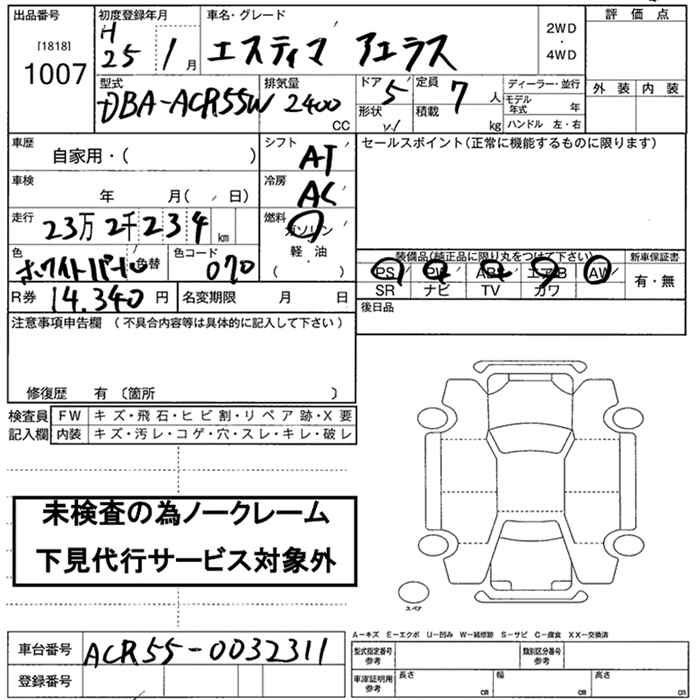 出品番号 初度登録年月 車名・グレード 評価点
[1818] 1007 H 25 / 1 月 エスティマ アエラス 2WD ・ 4WD
外装 内装
型式 排気量 ドア 5 定員 7 人 ディーラー・並行
DBA-ACR55W 2400 CC 形状 積載 kg モデル年式 年
ハンドル 左・右
車歴 自家用・( ) シフト AT セールスポイント(正常に機能するものに限ります)
車検 年 月( 日) 冷房 AC
走行 23万 2千 234 km 燃料 ガソリン 軽・油 ( )
色 ホワイトパール 色替 色コード 070
装備品(純正品に限り丸をつけて下さい) 新車保証書
PS PW ABS エアB AW 有・無
SR ナビ TV カワ
R券 14,340 円 名変期限 月 日
後日品
注意事項申告欄 (不具合内容等は具体的に記入して下さい)
修復歴 有 〔箇所 〕
検査員 FW キズ・飛石・ヒビ割・リペア跡・X要
記入欄 内装 キズ・汚レ・コゲ・穴・スレ・キレ・破レ
未検査の為ノークレーム
下見代行サービス対象外
スペア
A－キズ E－エクボ U－凹み W－補修跡 S－サビ C－腐食 XX－交換済
車台番号 ACR55-0032311 型式指定番号 参考 類別区分番号 参考
登録番号 車庫証明用 参考 長さ cm 幅 cm 高さ cm